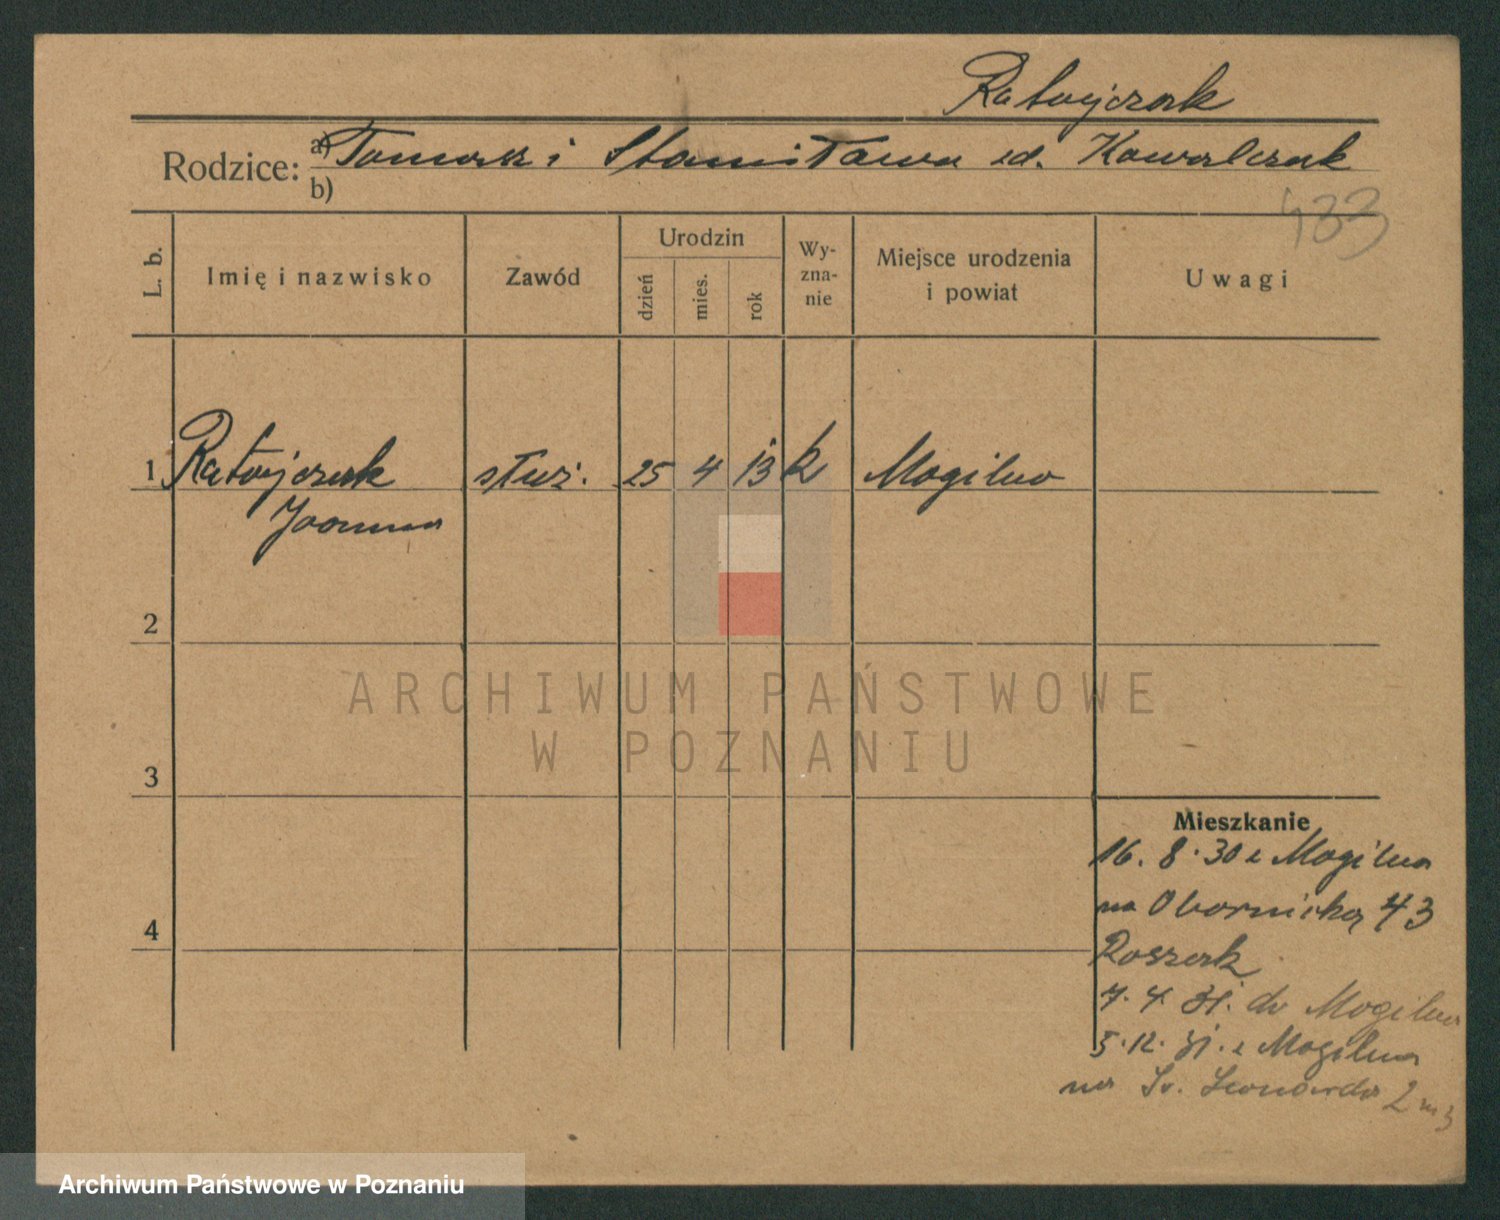 Ratajczak
Rodzice: a) Tomasz i Stanisława zd. Kowalczak
b)
433
L. b.
Imię i nazwisko
Zawód
Urodzin
dzień
mies.
rok
Wy-
zna-
nie
Miejsce urodzenia
i powiat
Uwagi
1 Ratajczak służ. 25 4 13 k Mogilno
Joanna
2
3
4
Mieszkanie
16. 8. 30 z Mogilna
na Obornicka 43
Roszak
7. 4. 31. do Mogilna
5. 12. 31. z Mogilna
na Św. Leonarda 2 m 3
ARCHIWUM PAŃSTWOWE
W POZNANIU
Archiwum Państwowe w Poznaniu